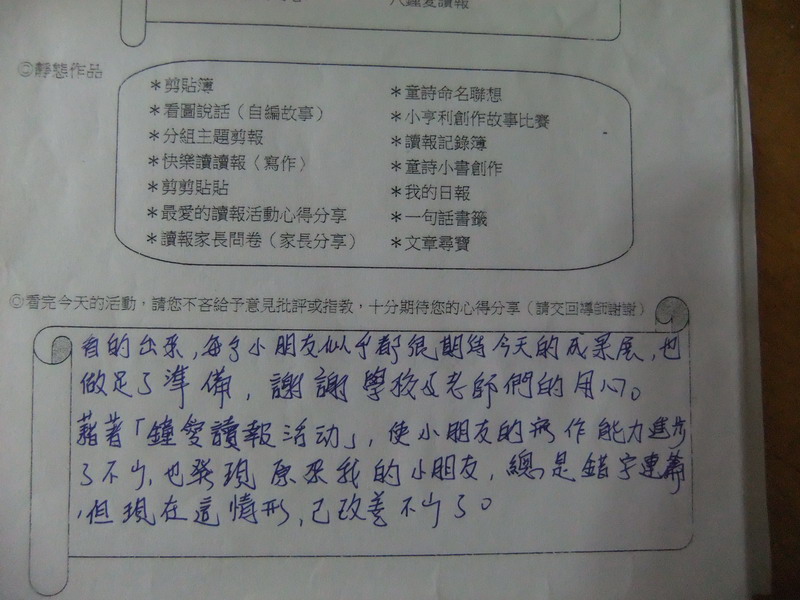 八鐘愛讀報
◎靜態作品
＊剪貼簿
＊看圖說話（自編故事）
＊分組主題剪報
＊快樂讀讀報（寫作）
＊剪剪貼貼
＊最愛的讀報活動心得分享
＊讀報家長問卷（家長分享）
＊童詩命名聯想
＊小亨利創作故事比賽
＊讀報記錄簿
＊童詩小書創作
＊我的日報
＊一句話書籤
＊文章尋寶
◎看完今天的活動，請您不吝給予意見批評或指教，十分期待您的心得分享（請交回導師謝謝）
看的出來，每个小朋友似乎都很期待今天的成果展，也
做足了準備，謝謝學校及老師們的用心。
藉著「鐘愛讀報活动」，使小朋友的寫作能力進步
了不少，也發現原來我的小朋友，總是錯字連篇
，但現在這情形，已改善不少了。